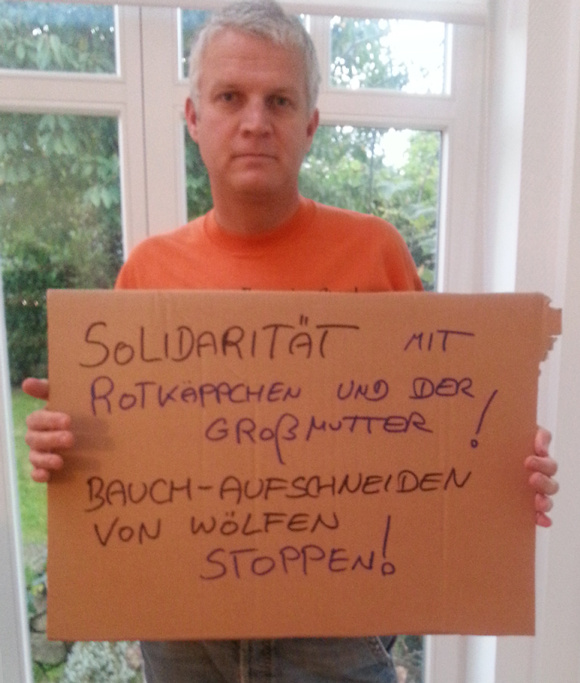 SOLIDARITÄT MIT
ROTKÄPPCHEN UND DER
GROßMUTTER!
BAUCH-AUFSCHNEIDEN
VON WÖLFEN
STOPPEN!